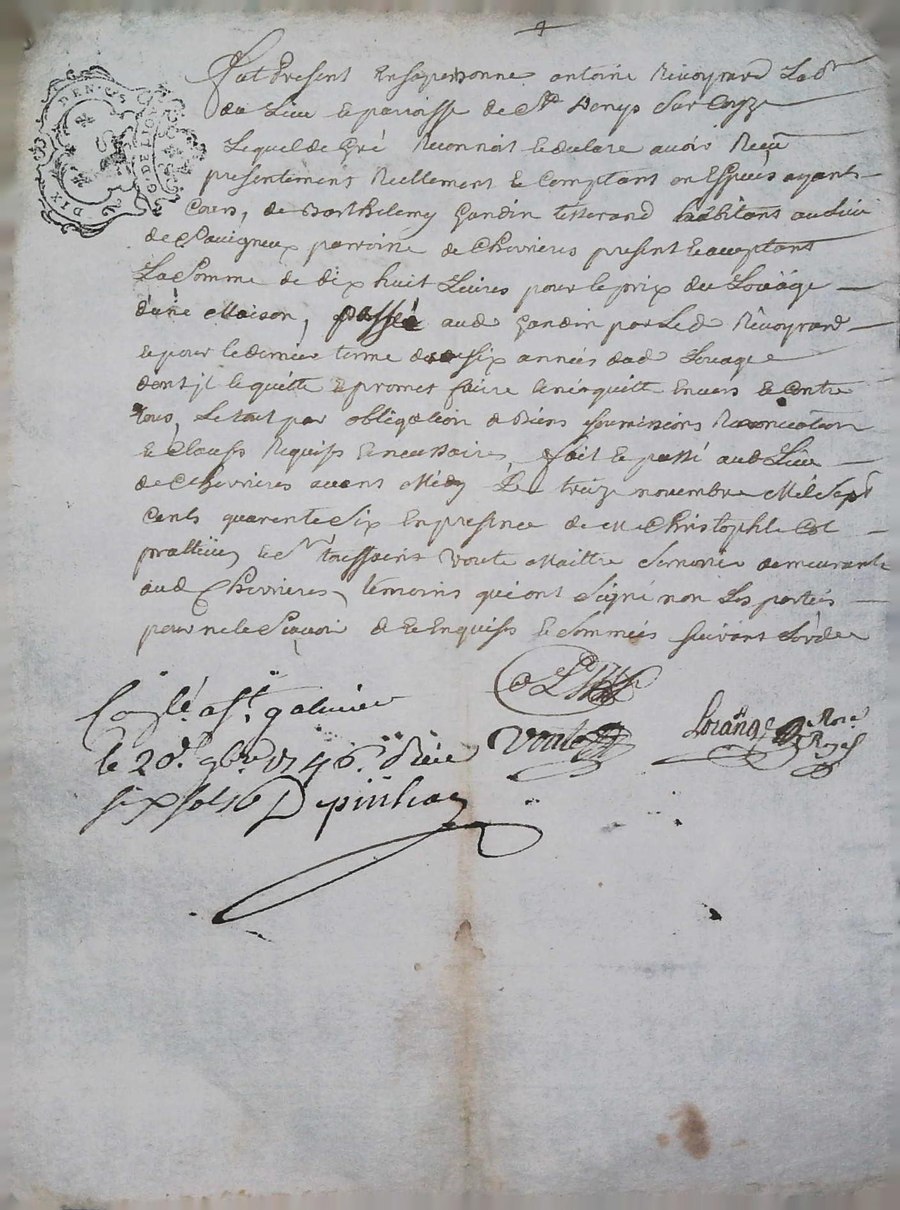 DIX DEN.
G. DE LION
fut Present En sa personne antoine Rivoyrard Lab.r
du Lieu et parroisse de St Denys sur Coyze
Lequel de Gré Reconnoit et declare avoir Reçu
presentement Reellement et Comptant en Especes ayants
Cours, de Barthelemy Gandin tisserand habitant au Lieu
de parroisse de Chevrieres present et acceptant
La Somme de dix huit Livres pour le prix du Louäge
d'une Maison, passée aud Gandin par Led Rivoyrard
et pour le dernier terme de six années dud Louage
dont jl le quitte et promet faire tenir quitte Envers et Contre
tous, Le tout par obligation de Biens soumissions Renonciation
et Clauses Requises et necessaires fait et passé aud Lieu
de Chevrieres avant Midy Le treize novembre Mil Sept
Cents quarente Six En presence de Me Christophle Cot
pratticien, et Sr toussaint voute Maittre demeurants
aud Chevrieres, temoins qui ont Signé non Les parties
pour ne le Sçavoir de ce Enquises et Sommées suivant L'ordce
Conlé a St galmier
le 20e 9bre 1746. Reçu
six sols Depinhac
Cot
Voute
Lorange
Not.
Royal